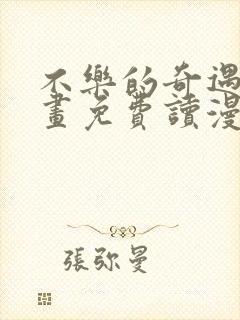 不樂的奇遇
畫免費讀漫
張弥曼